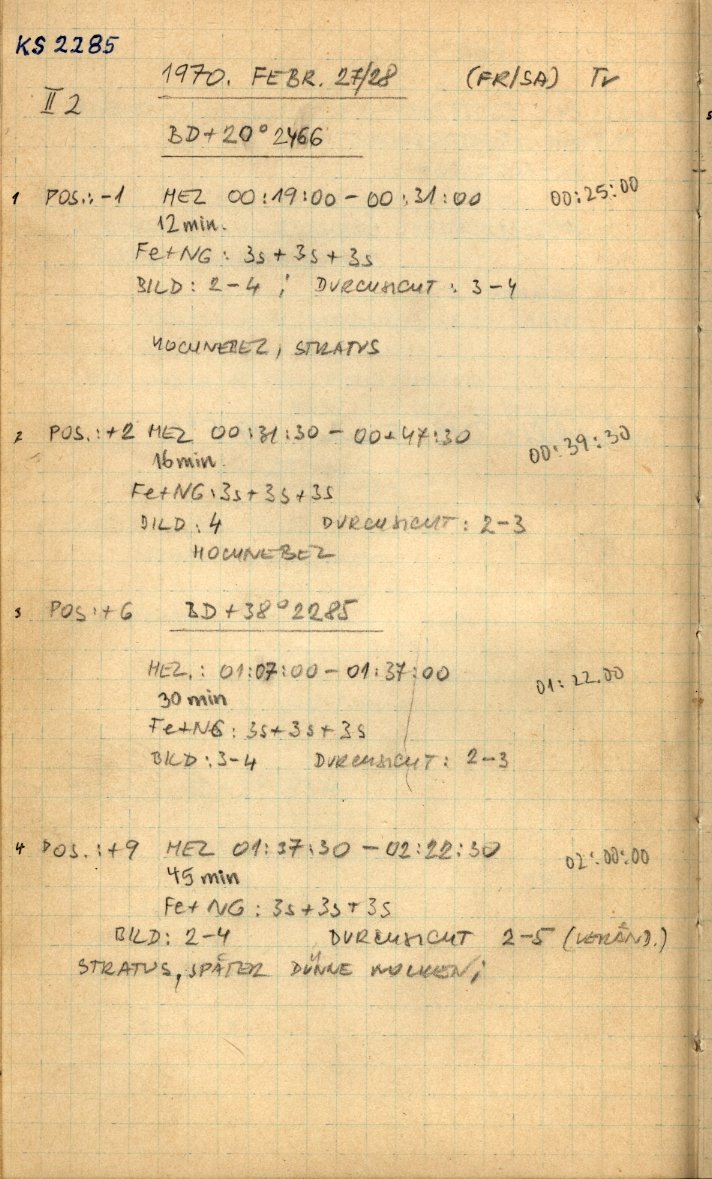 KS 2285
1970. FEBR. 27/28 (FR/SA) Tr
II 2
BD+20° 2466
1 POS.: -1 MEZ 00:19:00 - 00:31:00 00:25:00
12 min.
Fe+NG: 3s + 3s + 3s
BILD: 2-4 ; DURCHSICHT: 3-4
HOCHNEBEL, STRATUS
2 POS.: +2 MEZ 00:31:30 - 00:47:30 00:39:30
16 min.
Fe+NG: 3s + 3s + 3s
BILD: 4 DURCHSICHT: 2-3
HOCHNEBEL
3 POS: +6 BD+38° 2285
MEZ.: 01:07:00 - 01:37:00 01:22.00
30 min
Fe+NG: 3s + 3s + 3s
BILD: 3-4 DURCHSICHT: 2-3
4 POS.: +9 MEZ 01:37:30 - 02:22:30 02:00:00
45 min
Fe+NG: 3s+3s+3s
BILD: 2-4 DURCHSICHT 2-5 (VERÄND.)
STRATUS, SPÄTER DÜNNE WOLKEN;